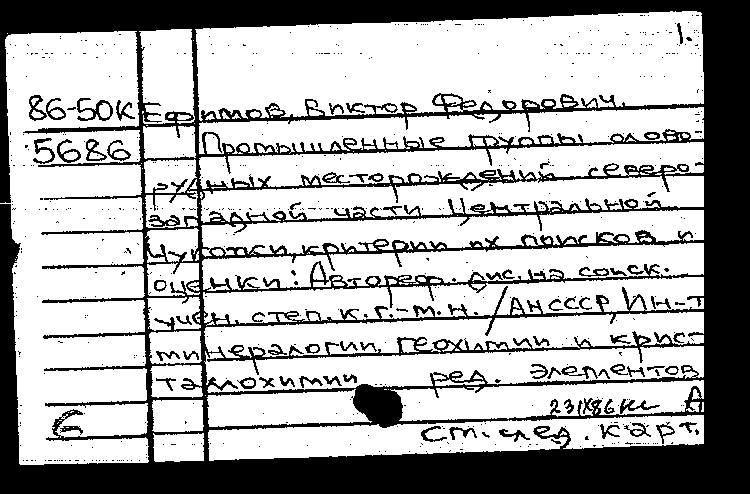 1.
86-50К Ефимов, Виктор Федорович.
5686 Промышленные группы олово-
рудных месторождений северо-
западной части Центральной
Чукотки, критерии их поисков и
оценки: Автореф. дис. на соиск.
учен. степ. к. г.-м. н. / АН СССР, Ин-т
минералогии, геохимии и крис-
таллохимии ред. элементов
23 IX 86 А
6 См. след. карт.